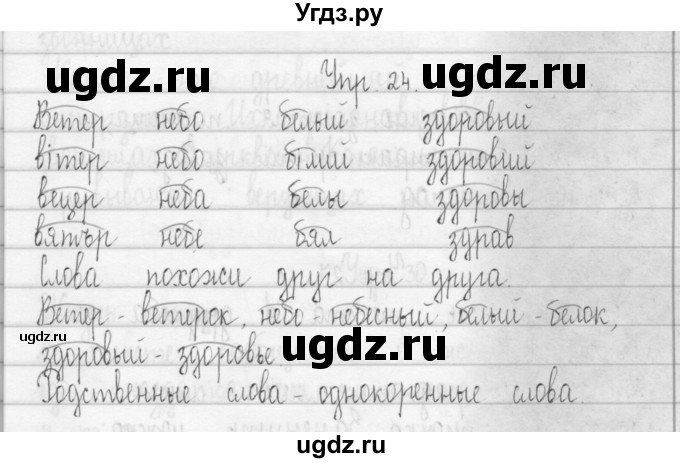 Угдз.ру
ugdz.ru Упр. 24. ugdz.ru
Ветер небо белый здоровый
вітер небо білий здоровий
вецер неба белы здоровы
вятър небе бял здрав
Слова похожи друг на друга.
Ветер - ветерок, небо - небесный, белый - белок,
ugdz.ru
здоровый - здоровье ugdz.ru
Родственные слова - однокоренные слова.
ugdz.ru